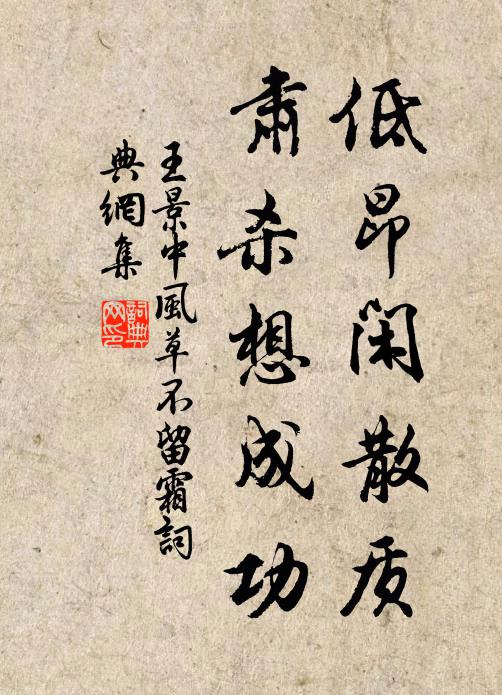 低昂闲散质
肃杀想成功
王景中風草不留霜詞
典網集
詞典网印